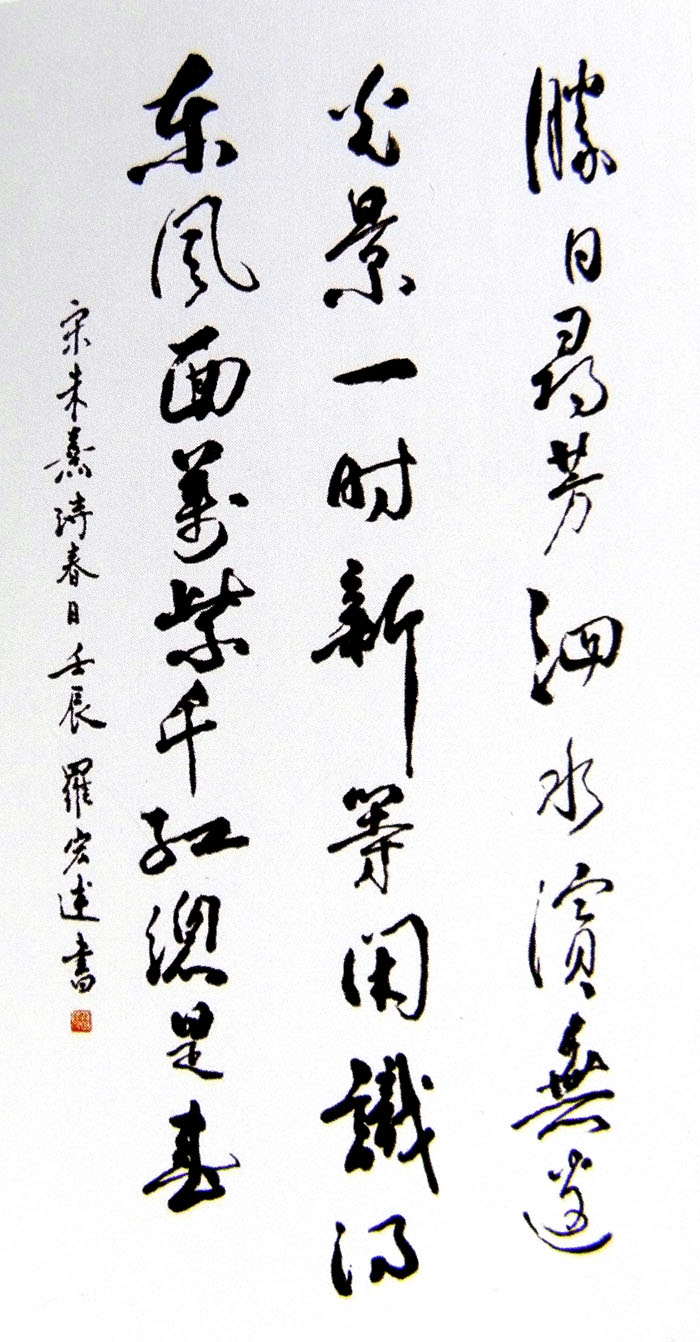 勝日尋芳泗水濱無邊
光景一时新等闲識得
东風面萬紫千红總是春
宋朱熹诗春日壬辰羅宏達書